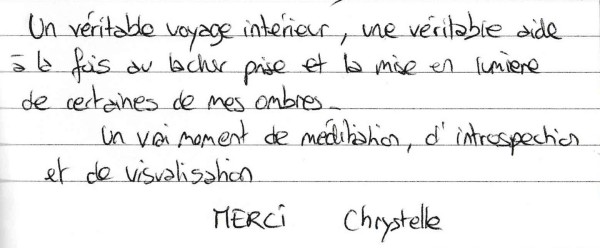 Un véritable voyage intérieur, une véritable aide
à la fois au lacher prise et la mise en lumière
de certaines de mes ombres.
Un vrai moment de méditation, d'introspection
et de visualisation
MERCI Chrystelle